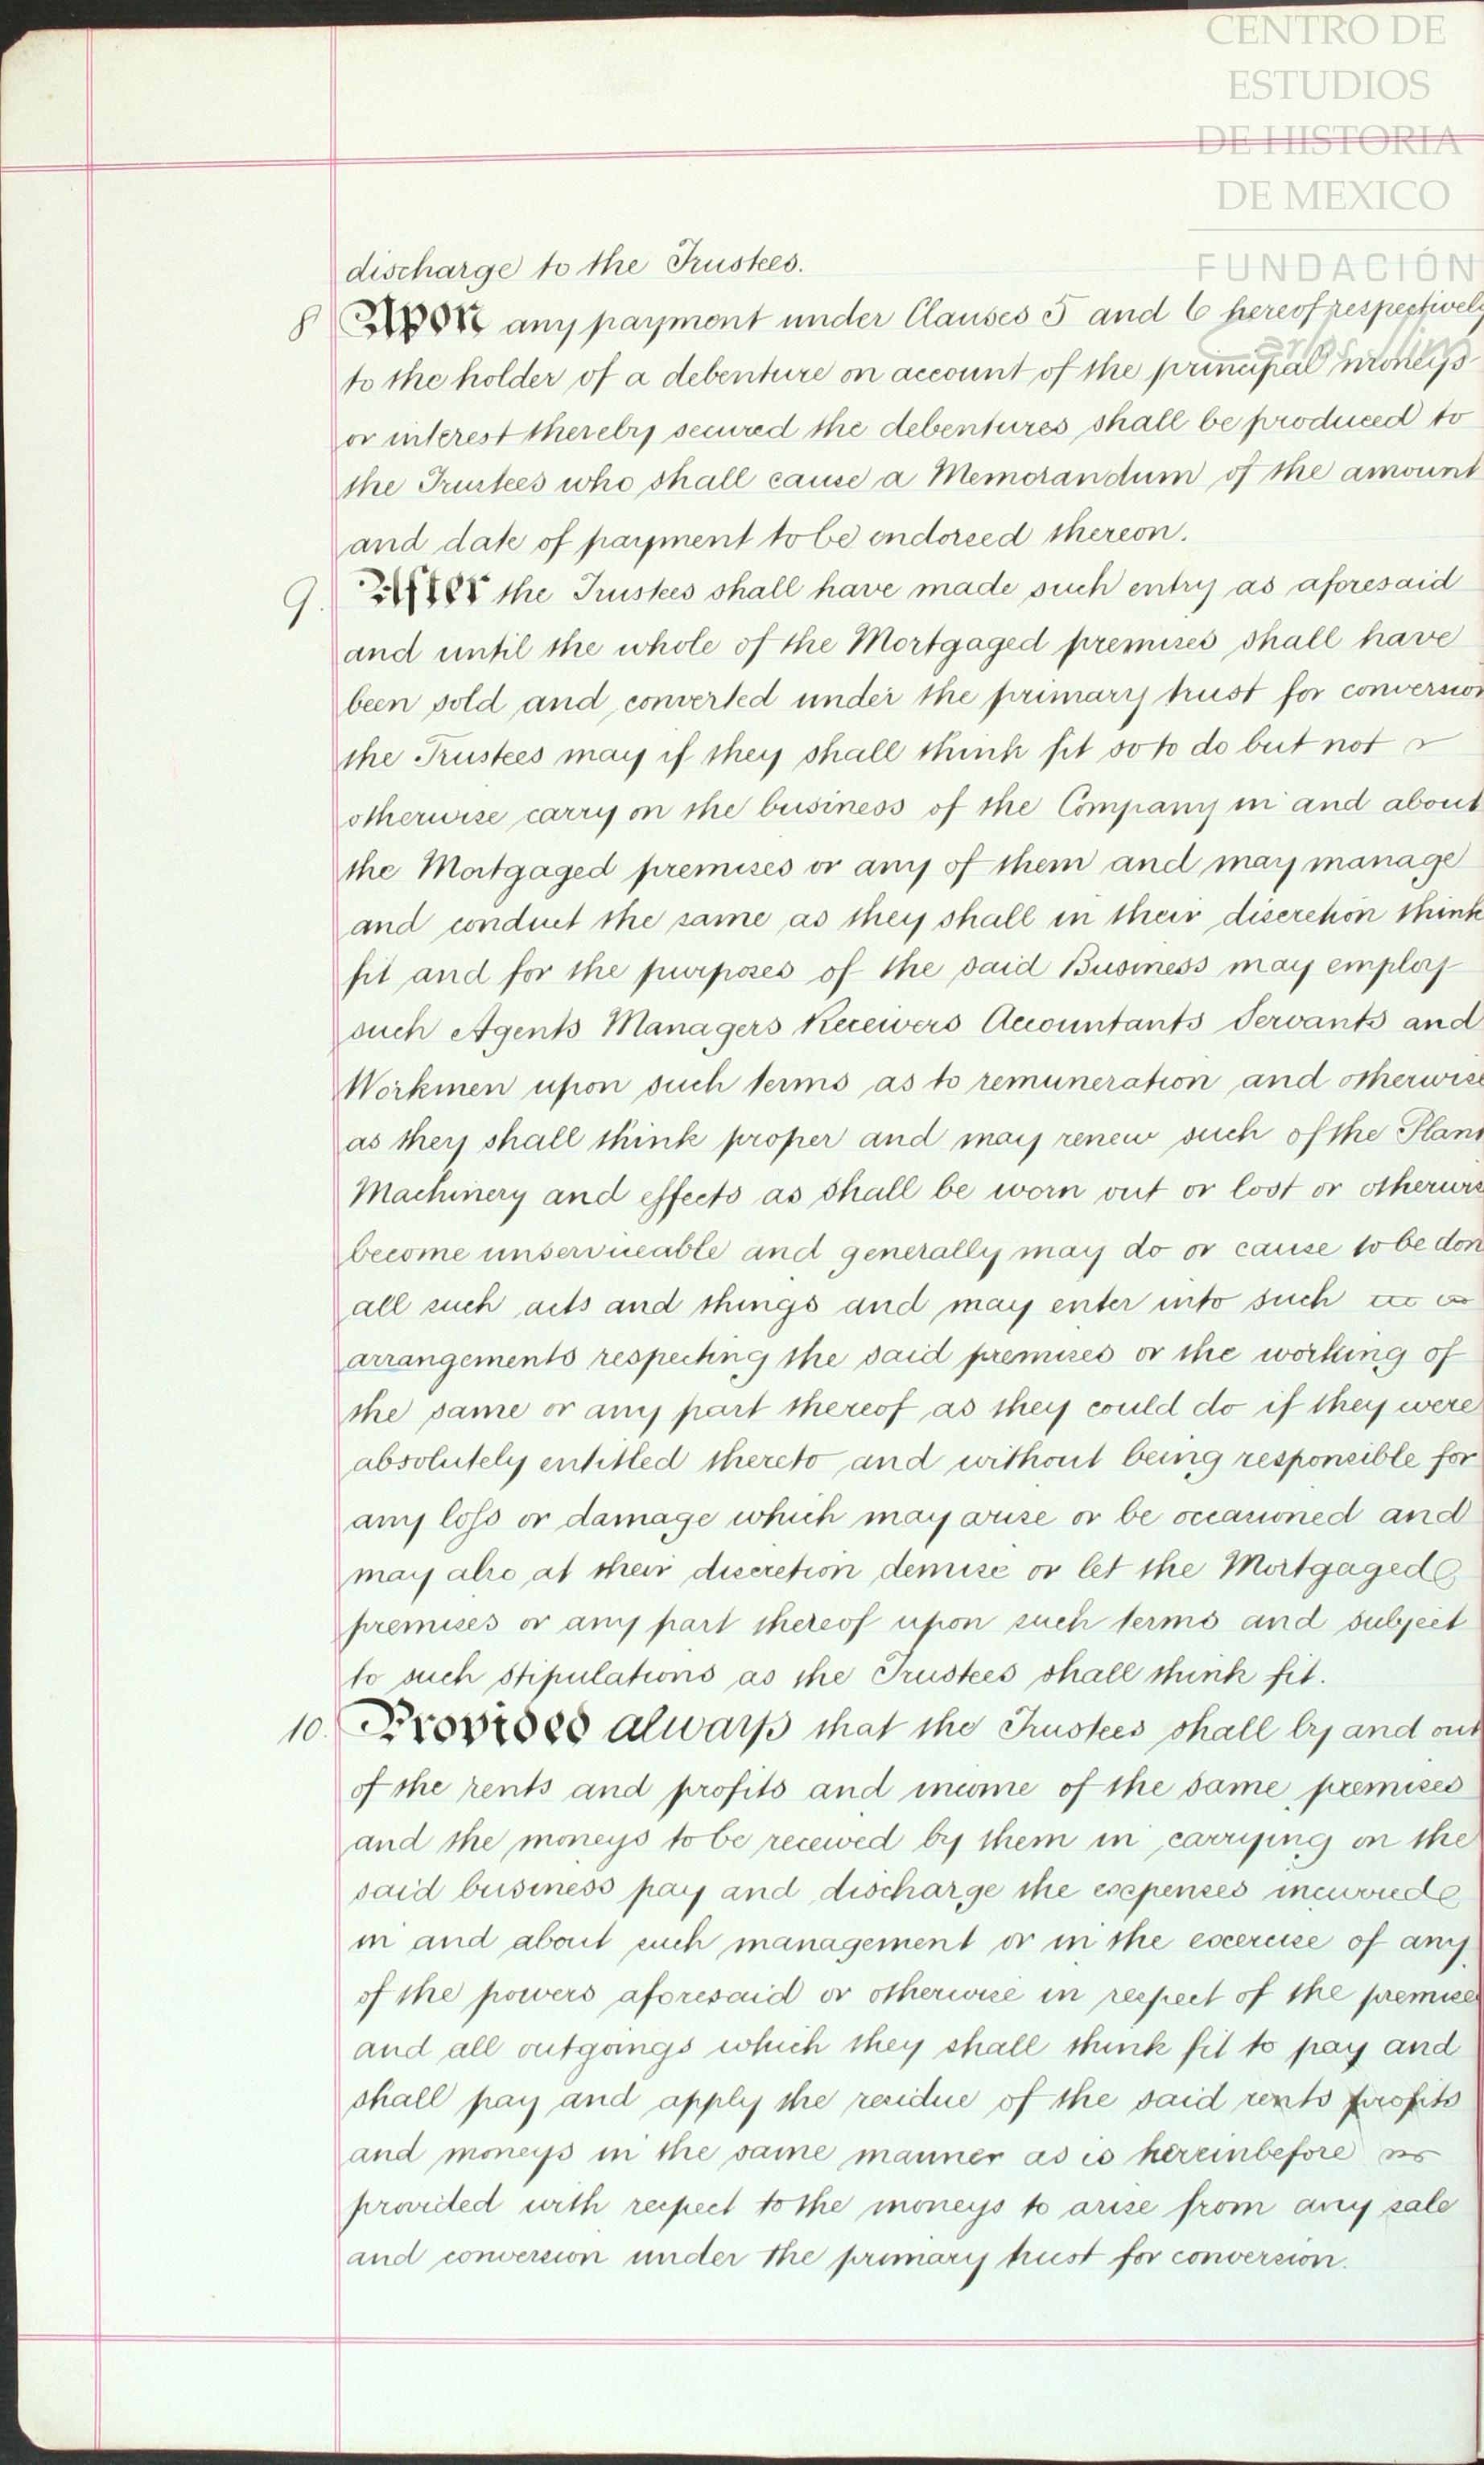 CENTRO DE
ESTUDIOS
DE HISTORIA
DE MEXICO
FUNDACIÓN
Carlos Slim
discharge to the Trustees.
8 Upon any payment under Clauses 5 and 6 hereof respectively
to the holder of a debenture on account of the principal moneys
or interest thereby secured the debentures shall be produced to
the Trustees who shall cause a Memorandum of the amount
and date of payment to be endorsed thereon.
9. After the Trustees shall have made such entry as aforesaid
and until the whole of the Mortgaged premises shall have
been sold and converted under the primary trust for conversion
the Trustees may if they shall think fit so to do but not
otherwise carry on the business of the Company in and about
the Mortgaged premises or any of them and may manage
and conduct the same as they shall in their discretion think
fit and for the purposes of the said Business may employ
such Agents Managers Receivers Accountants Servants and
Workmen upon such terms as to remuneration and otherwise
as they shall think proper and may renew such of the Plant
Machinery and effects as shall be worn out or lost or otherwis
become unserviceable and generally may do or cause to be don
all such acts and things and may enter into such
arrangements respecting the said premises or the working of
the same or any part thereof as they could do if they were
absolutely entitled thereto and without being responsible for
any loss or damage which may arise or be occasioned and
may also at their discretion demise or let the Mortgaged
premises or any part thereof upon such terms and subject
to such stipulations as the Trustees shall think fit.
10. Provided always that the Trustees shall by and out
of the rents and profits and income of the same premises
and the moneys to be received by them in carrying on the
said business pay and discharge the expenses incurred
in and about such management or in the exercise of any
of the powers aforesaid or otherwise in respect of the premises
and all outgoings which they shall think fit to pay and
shall pay and apply the residue of the said rents profits
and moneys in the same manner as is hereinbefore
provided with respect to the moneys to arise from any sale
and conversion under the primary trust for conversion.